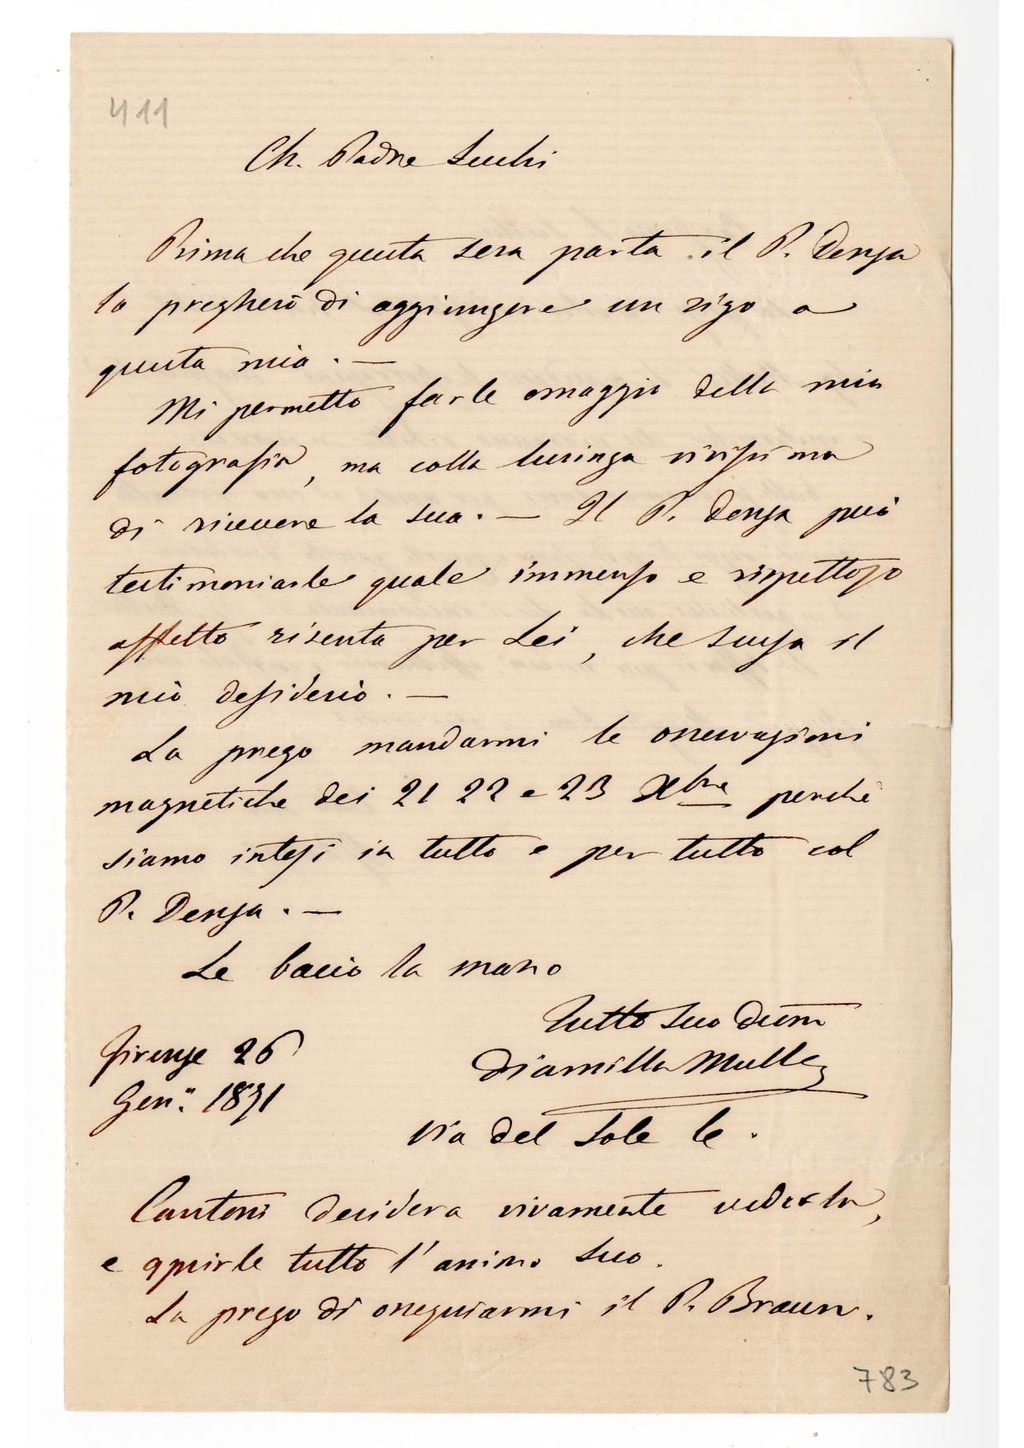 411
Ch. Padre Secchi
Prima che questa sera parta il P. Denza
lo pregherò di aggiungere un rigo a
questa mia. —
Mi permetto farle omaggio della mia
fotografia, ma colla lusinga vivissima
di ricevere la sua. — Il P. Denza può
testimoniarle quale immenso e rispettoso
affetto risenta per Lei, che scusa il
mio desiderio. —
La prego mandarmi le osservazioni
magnetiche dei 21 22 e 23 Xbre perchè
siamo intesi in tutto e per tutto col
P. Denza. —
Le bacio la mano
Tutto suo Devm
Diamilla Muller
Firenze 26
Gen.° 1871
Via del Sole
Cantoni desidera vivamente vederla,
e aprirle tutto l'animo suo.
La prego di ossequiarmi il P. Braun.
783